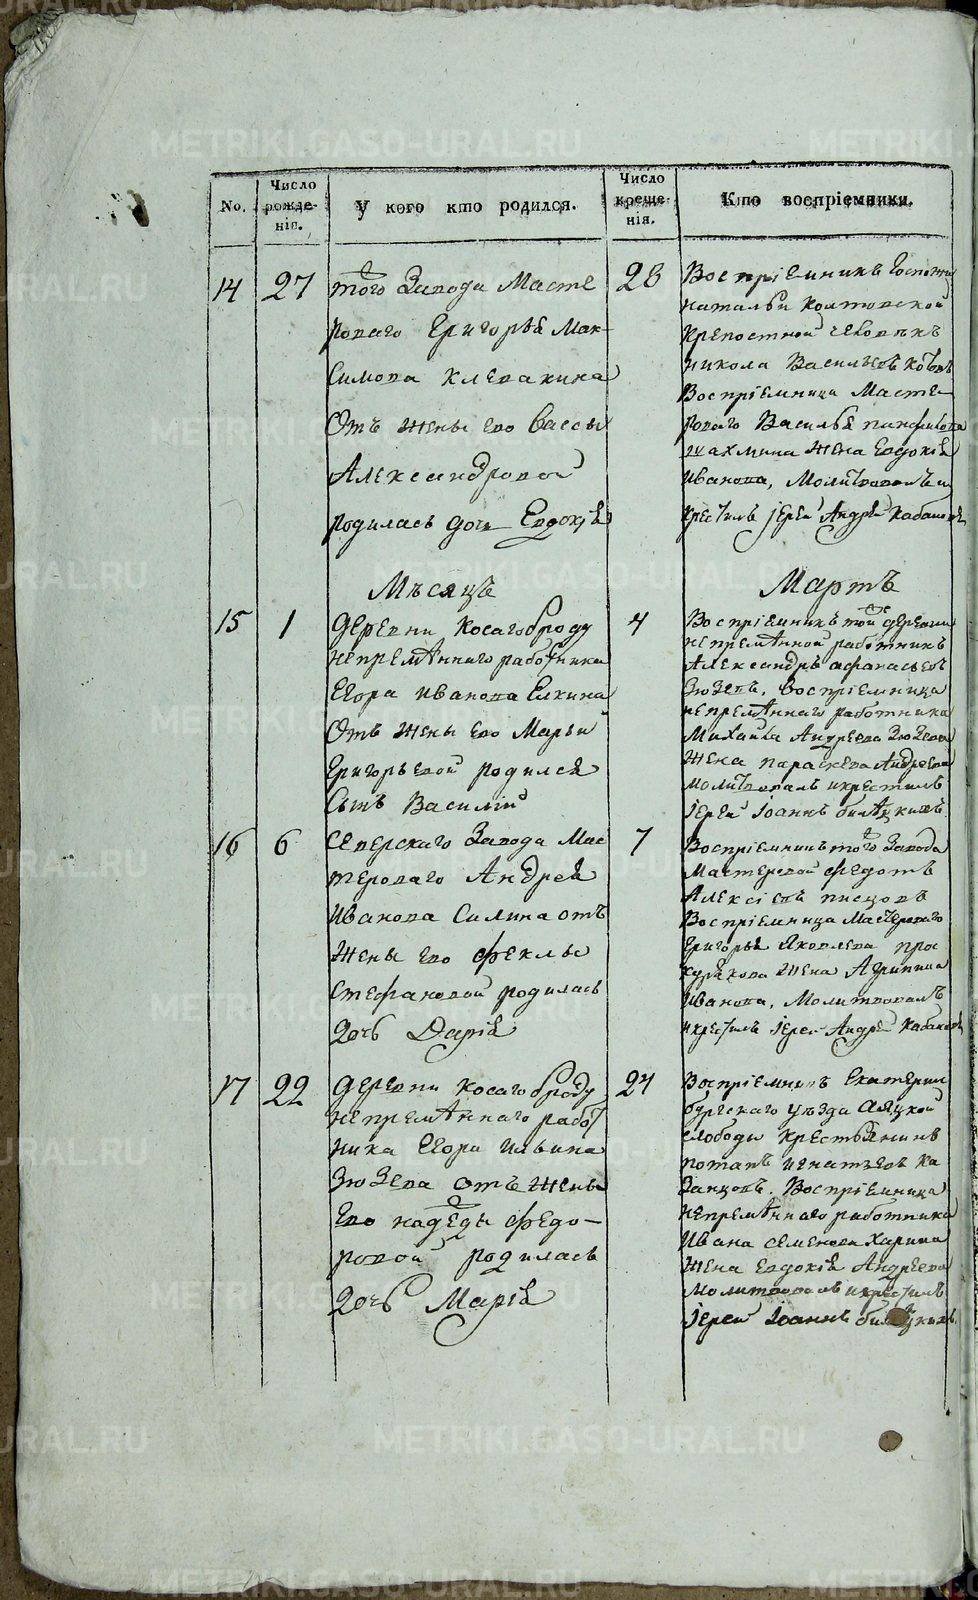 METRIKI.GASO-URAL.RU
No.
Число рожде-нія.
У кого кто родился.
Число креще-нія.
Кто воспріемники.
14
27
того Завода Масте
роваго Григорья Мак-
симова Клевакина
Отъ жены его Вассы
Александровой
родилась дочь Евдокія
28
Воспріемникъ Госпожи
Натальи Колтовской
крепостной человѣкъ
Никола Васильевъ
Воспріемница Масте-
роваго Василья Панфилова
жена Евдокія
Иванова, Молитвовалъ и
крестилъ Іерей Андрей Кабаковъ
Мѣсяцъ
Мартъ
15
1
Деревни Косагоброду
непремѣннаго работника
Егора Иванова Елкина
Отъ жены его Марьи
Григорьевой родился
Сынъ Василій
4
Воспріемникъ той же деревни
непремѣнной работникъ
Александръ Афанасьевъ
Зюзевъ. Воспріемница
непремѣннаго работника
Михайла Андреева Зюзева
жена Параскева Андреева
молитвовалъ и крестилъ
Іерей Іоаннъ
16
6
Северскаго Завода Мас
тероваго Андрея
Иванова Силина отъ
жены его Феклы
Стефановой родилась
дочь Дарія
7
Воспріемникъ того Завода
Мастеровой Федотъ
Алексіевъ Писцовъ
Воспріемница Мастероваго
Григорья Яковлева Прос
курякова жена Агрипина
Иванова, Молитвовалъ
и крестилъ Іерей Андрей Кабаковъ
17
22
Деревни Косагоброду
непремѣннаго работ
ника Егора Ильина
Зюзева отъ жены
Его Надежды Федо-
ровой родилась
дочь Марія
24
Воспріемникъ Екатерин
бургскаго уѣзда Аяцкой
слободы крестьянинъ
Потапъ Игнатьевъ Ка
занцовъ. Воспріемница
непремѣннаго работника
Ивана Семенова Харина
жена Евдокія Андреева
молитвовалъ и крестилъ
Іерей Іоаннъ